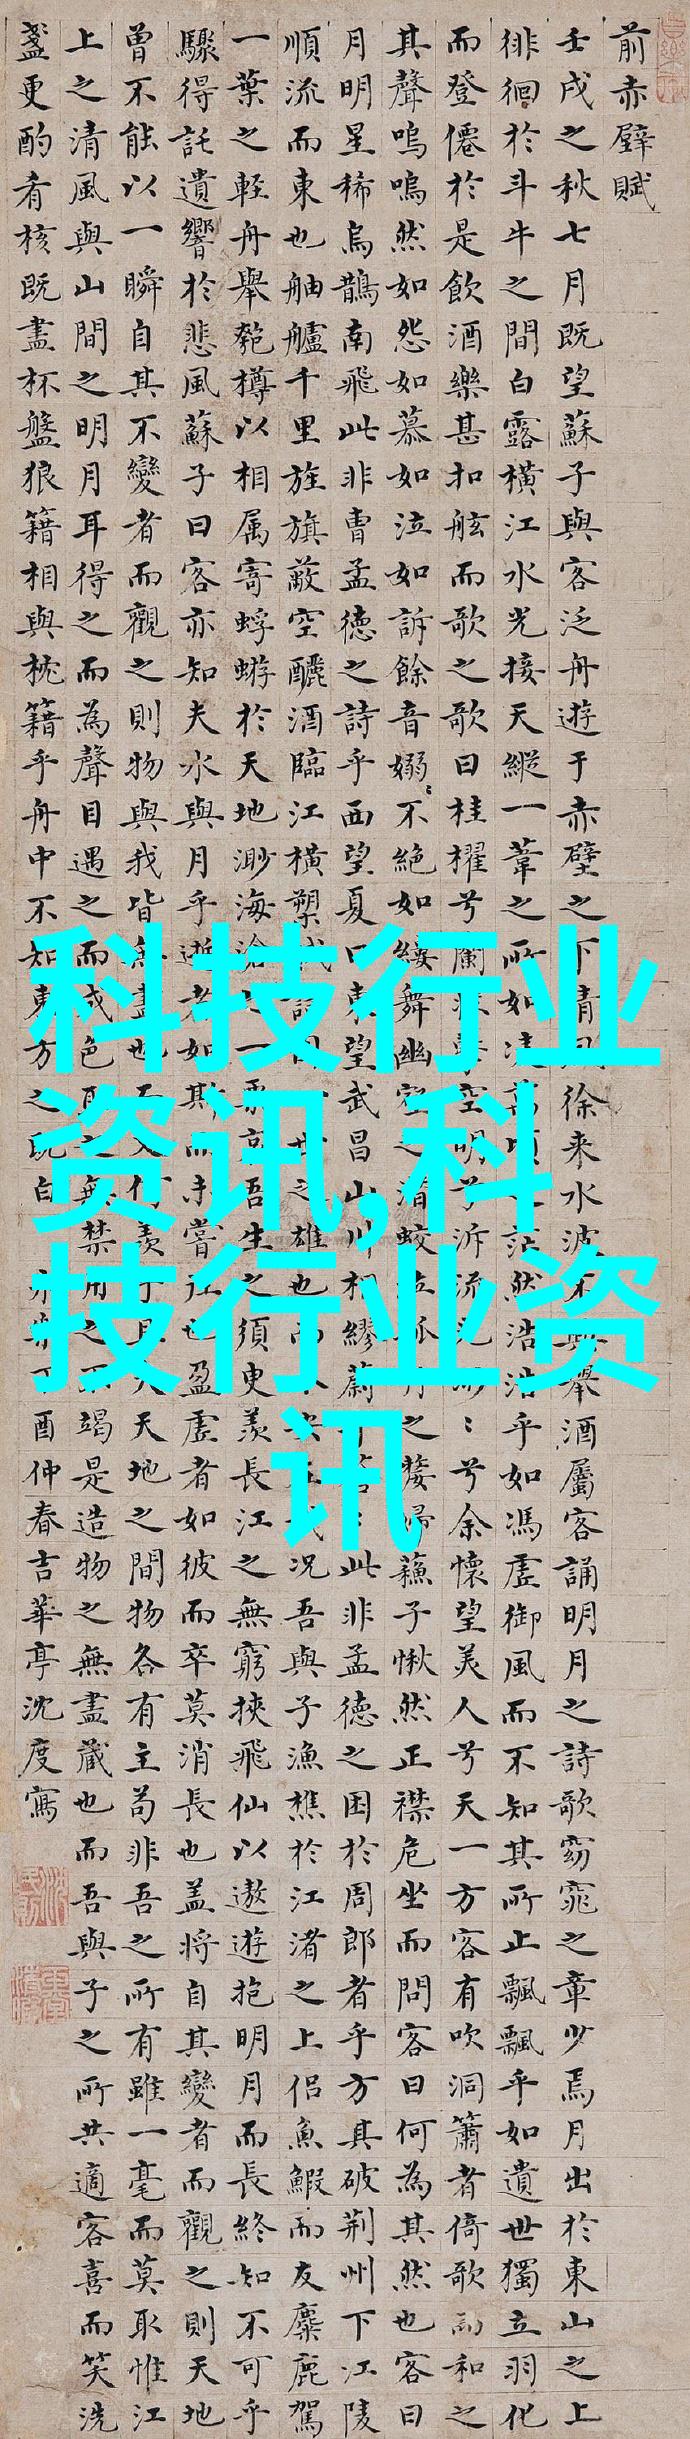 前赤壁賦
壬戌之秋七月既望蘇子與客泛舟遊于赤壁之下清風徐来水波不興舉酒屬客誦明月之詩歌窈窕之章少焉月出於東山之上
徘徊於斗牛之間白露橫江水光接天縱一葦之所如凌萬頃之茫然浩浩乎如馮虛御風而不知其所止飄飄乎如遺世獨立羽化
而登僊於是飲酒樂甚扣舷而歌之歌曰桂櫂兮蘭槳擊空明兮泝流光渺〻兮余懷望美人兮天一方客有吹洞簫者倚歌而和之
其聲嗚嗚然如怨如慕如泣如訴餘音嫋〻不絕如縷舞幽壑之潛蛟泣孤舟之嫠婦蘇子愀然正襟危坐而問客曰何為其然也客曰
月明星稀烏鵲南飛此非曹孟德之詩乎西望夏口東望武昌山川相繆鬱乎蒼〻此非孟德之困於周郎者乎方其破荊州下江陵
順流而東也舳艫千里旌旗蔽空釃酒臨江橫槊賦詩固一世之雄也而今安在哉況吾與子漁樵於江渚之上侶魚鰕而友麋鹿駕
一葉之輕舟舉匏樽以相属寄蜉蝣於天地渺海滄之一粟哀吾生之須臾羨長江之無窮挾飛仙以遨遊抱明月而長終知不可乎
驟得託遺響於悲風蘇子曰客亦知夫水與月乎逝者如斯而未嘗往也盈虛者如彼而卒莫消長也盖將自其變者而觀之則天地
曾不能以一瞬自其不變者而觀之則物與我皆無盡也而又何羨乎且夫天地之間物各有主苟非吾之所有雖一毫而莫取惟江
上之清風與山間之明月耳得之而為聲目遇之而成色取之無禁用之不竭是造物之無盡藏也而吾與子之所共適客喜而笑洗
盞更酌肴核既盡杯盤狼籍相與枕籍乎舟中不知東方之既白 永樂丁酉仲春吉華亭沈度寫
科技行业
资讯,科
技行业资
讯